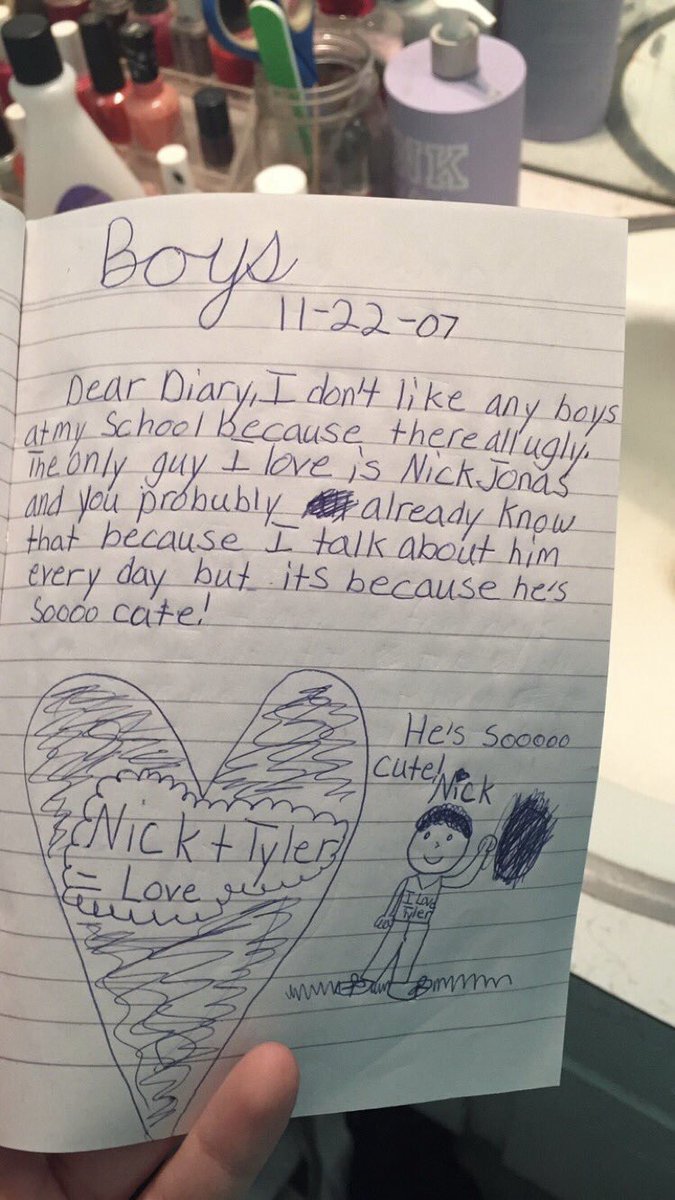 NK
Boys
11-22-07
Dear Diary, I don't like any boys
at my School because there all ugly.
The only guy I love is Nick Jonas
and you probubly already know
that because I talk about him
every day but its because he's
Soooo cate!
He's sooooo
cute!
Nick
Nick + Tyler
= Love
I Love
Tyler